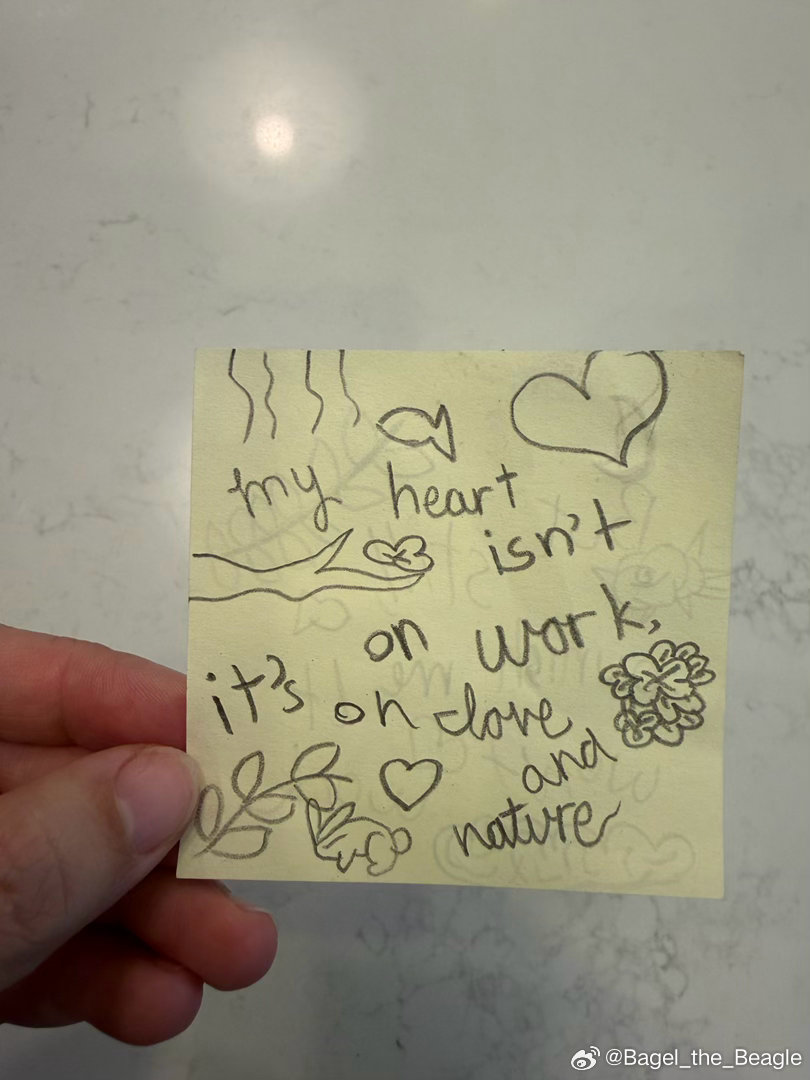 my heart
isn't
on work,
it's on love
and
nature
@Bagel_the_Beagle